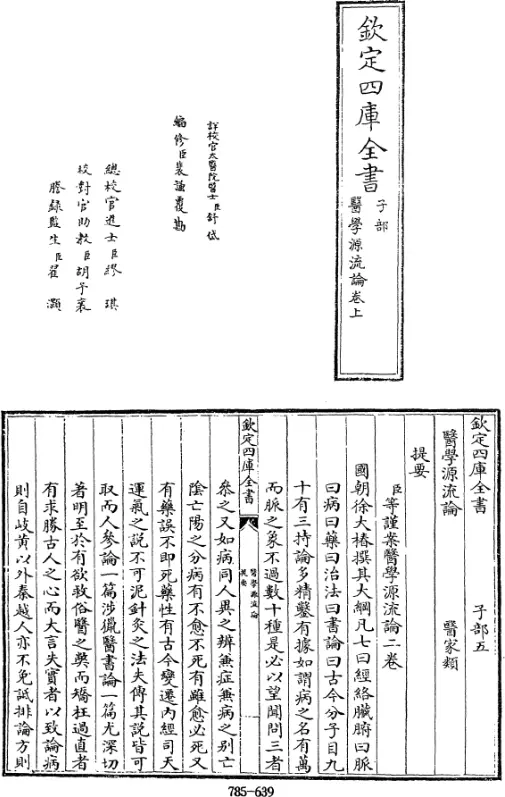 欽定四庫全書
子部
醫學源流論卷上
詳校官太醫院醫士臣舒岱
編修臣裴謙覆勘
總校官進士臣繆琪
校對官助教臣胡予襄
謄錄監生臣翟灝
欽定四庫全書　子部五
醫學源流論　醫家類
提要
臣等謹案醫學源流論二卷
國朝徐大椿撰其大綱凡七曰經絡臟腑曰脈
曰病曰藥曰治法曰書論曰古今分子目九
十有三持論多精鑿有據如謂病之名有萬
而脈之象不過數十種是必以望聞問三者
欽定四庫全書
醫學源流論
提要
叅之又如病同人異之辨兼症兼病之别亡
陰亡陽之分病有不愈不死有雖愈必死又
有藥誤不即死藥性有古今變遷內經司天
運氣之說不可泥針灸之法失傳其說皆可
取而人參論一篇涉獵醫書論一篇尤深切
著明至於有欲救俗醫之獘而矯枉過直者
有求勝古人之心而大言失實者以致論病
則自岐黃以外秦越人亦不免詆排論方則
785-639